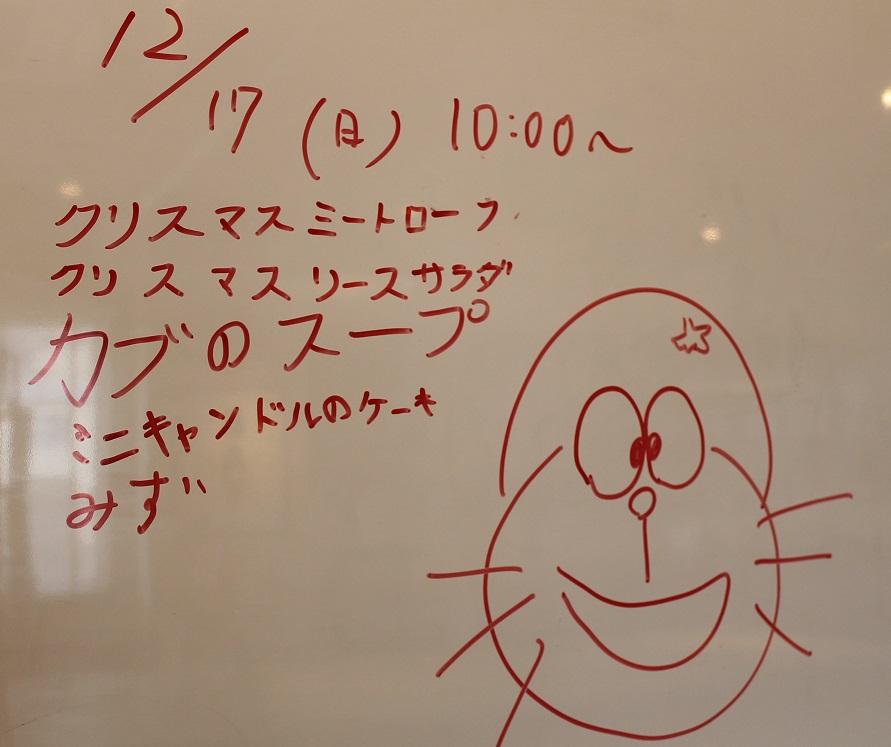 12/17 (日) 10:00~
クリスマスミートローフ
クリスマスリースサラダ
カブのスープ
ミニキャンドルのケーキ
みず